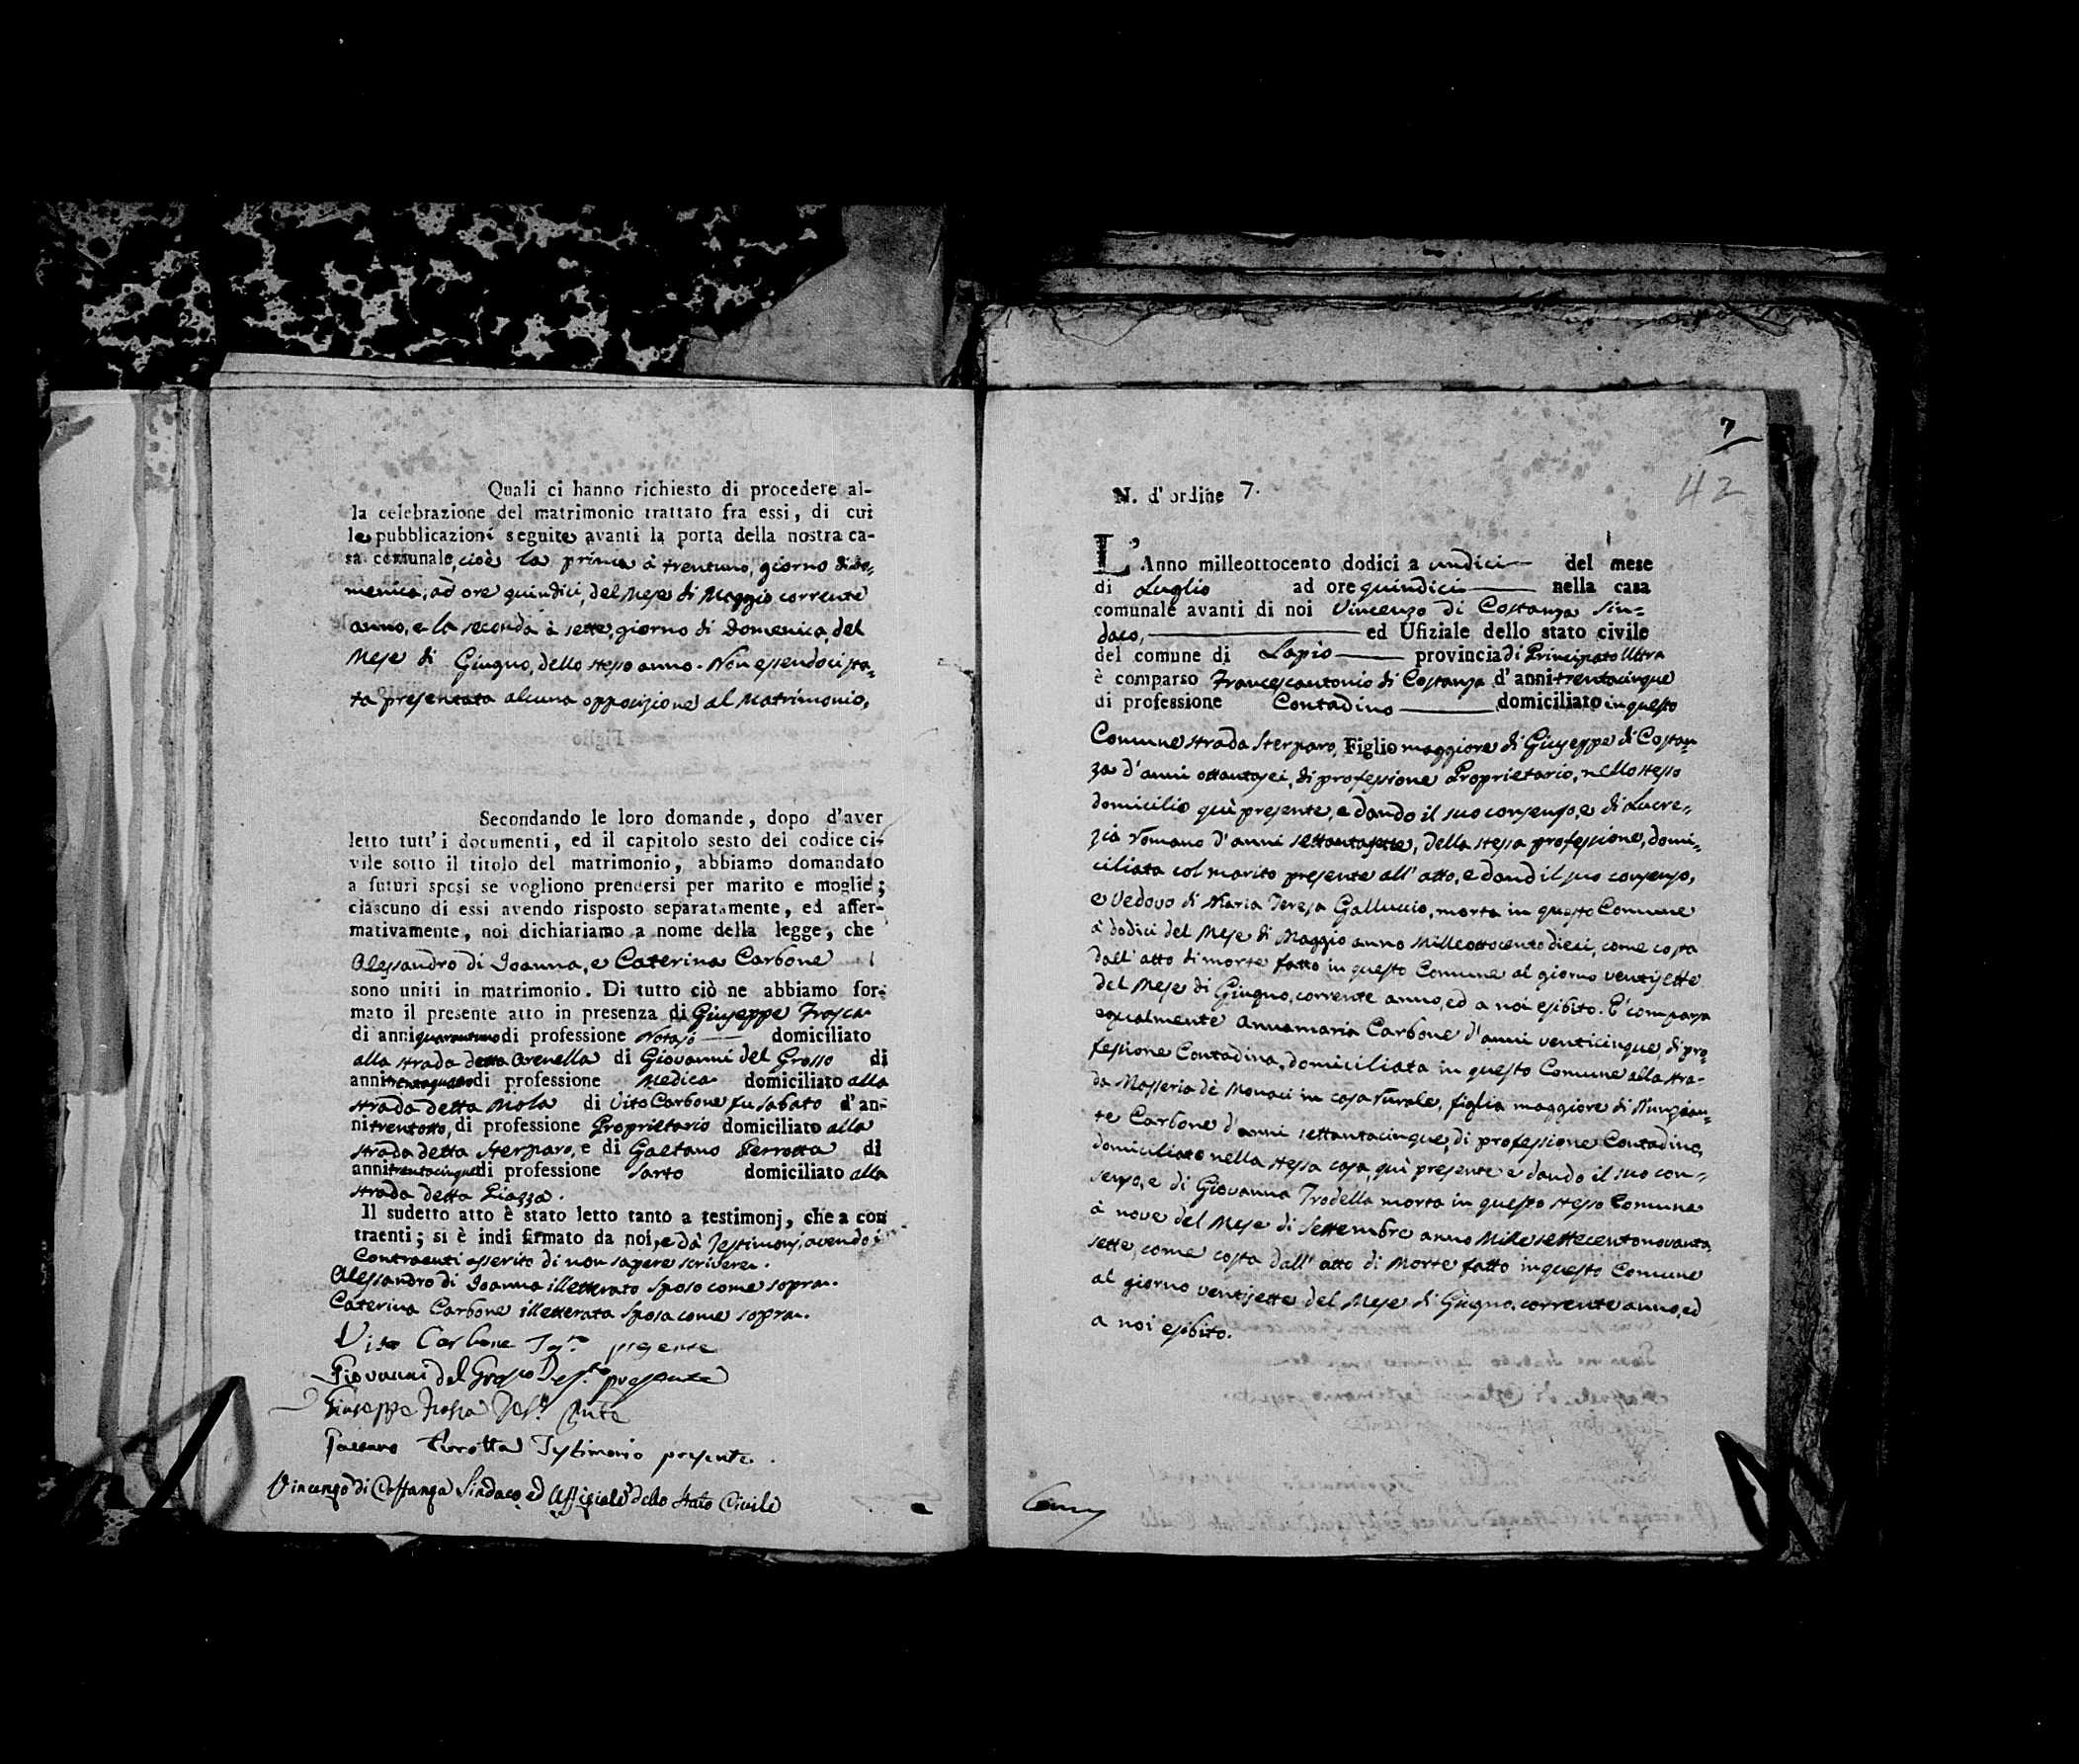 Quali ci hanno richiesto di procedere al-
la celebrazione del matrimonio trattato fra essi, di cui
le pubblicazioni seguite avanti la porta della nostra ca-
sa comunale, cioè la prima à trentuno, giorno di do-
menica, ad ore quindici, del Mese di Maggio corrente
anno, e la seconda à sette, giorno di Domenica, del
Mese di Giugno, dello stesso anno. Non essendoci sta-
ta presentata alcuna opposizione al Matrimonio,
Secondando le loro domande, dopo d'aver
letto tutt' i documenti, ed il capitolo sesto del codice ci-
vile sotto il titolo del matrimonio, abbiamo domandato
a futuri sposi se vogliono prendersi per marito e moglie;
ciascuno di essi avendo risposto separatamente, ed affer-
mativamente, noi dichiariamo a nome della legge, che
Alessandro di Ioanna, e Caterina Carbone
sono uniti in matrimonio. Di tutto ciò ne abbiamo for-
mato il presente atto in presenza di Giuseppe Trosca
di anni quarantuno di professione Notajo domiciliato
alla strada detta Arenella di Giovanni del Grosso di
anni di professione Medico domiciliato alla
strada detta Mola di Vito Carbone fu Sabato d'an-
ni trentotto, di professione Proprietario domiciliato alla
strada detta Sterparo, e di Gaetano Perrotta di
anni trentacinque di professione Sarto domiciliato alla
strada detta Piazza.
Il sudetto atto è stato letto tanto a testimonj, che a con
traenti; si è indi firmato da noi, e dà Testimonj, avendo i
Contraenti asserito di non sapere scrivere.
Alessandro di Ioanna illetterato sposo come sopra.
Caterina Carbone illetterata sposa come sopra.
Vito Carbone presente
Giovanni del Grosso presente
Giuseppe
Gaetano Perrotta Testimonio presente.
Vincenzo di Costanza Sindaco, ed Uffiziale dello Stato Civile
7
42
N. d'ordine 7.
L'Anno milleottocento dodici a undici del mese
di Luglio ad ore quindici nella casa
comunale avanti di noi Vincenzo di Costanza Sin-
daco, ed Ufiziale dello stato civile
del comune di Lapio provincia di Principato Ultra
è comparso Francescantonio di Costanza d'anni trentacinque
di professione Contadino domiciliato in questo
Comune strada Sterparo, Figlio maggiore di Giuseppe di Costan-
za d'anni ottantasei, di professione Proprietario, nello stesso
domicilio quì presente, e dando il suo consenso, e di Lucre-
zia Romano d'anni settantasette, della stessa professione, domi-
ciliata col marito presente all'atto, e dand il suo consenso,
e Vedovo di Maria Teresa Galluccio, morta in questo Comune
à dodici del Mese di Maggio anno Milleottocento dieci, come costa
dall'atto di morte fatto in questo Comune al giorno ventisette
del Mese di Giugno, corrente anno, ed a noi esibito. E' comparsa
egualmente Annamaria Carbone d'anni venticinque, di pro-
fessione Contadina, domiciliata in questo Comune alla stra-
da Masseria dè Monaci in casa rurale, figlia maggiore di Nunzian-
te Carbone d'anni settantacinque, di professione Contadino,
domiciliato nella stessa casa, quì presente e dando il suo con-
senso, e di Giovanna Trodella morta in questo stesso Comune
à nove del Mese di Settembre anno Mille settecentonovanta
sette, come costa dall'atto di Morte fatto in questo Comune
al giorno ventisette del Mese di Giugno, corrente anno, ed
a noi esibito.